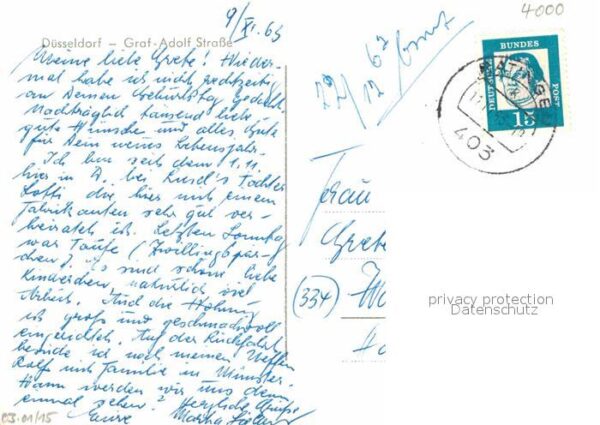 9/XI. 63
Düsseldorf – Graf-Adolf Straße
Meine liebe Grete! Wieder-
mal habe ich nicht rechtzeitig
an Deinen Geburtstag gedacht
Nachträglich tausend liebe
gute Wünsche und alles Gute
für Dein neues Lebensjahr.
Ich bin seit dem 1.11.
hier in D. bei Tochter
Lotti die hier mit einem
Fabrikanten sehr gut ver-
heiratet ist. Letzten Sonntag
war Taufe (Zwillingspär-
chen), es sind schöne liebe
Kinderchen, natürlich viel
Arbeit. Und die Wohnung
ist groß und geschmackvoll
eingerichtet. Auf der Rückfahrt
besuche ich noch meinen Neffen
Rolf und Familie in Münster.
Wann werden wir uns denn
einmal sehen? Herzliche Grüße
Eure Martha
03.01/15
22/12 63
4000
DEUTSCHE BUNDESPOST
15
RATINGEN
403
Frau
Grete
(334)
privacy protection
Datenschutz